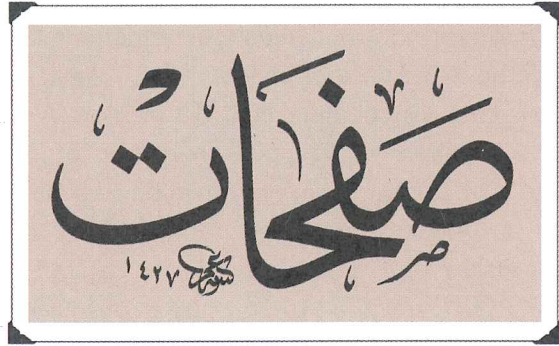 صفحات
١٤٢٧